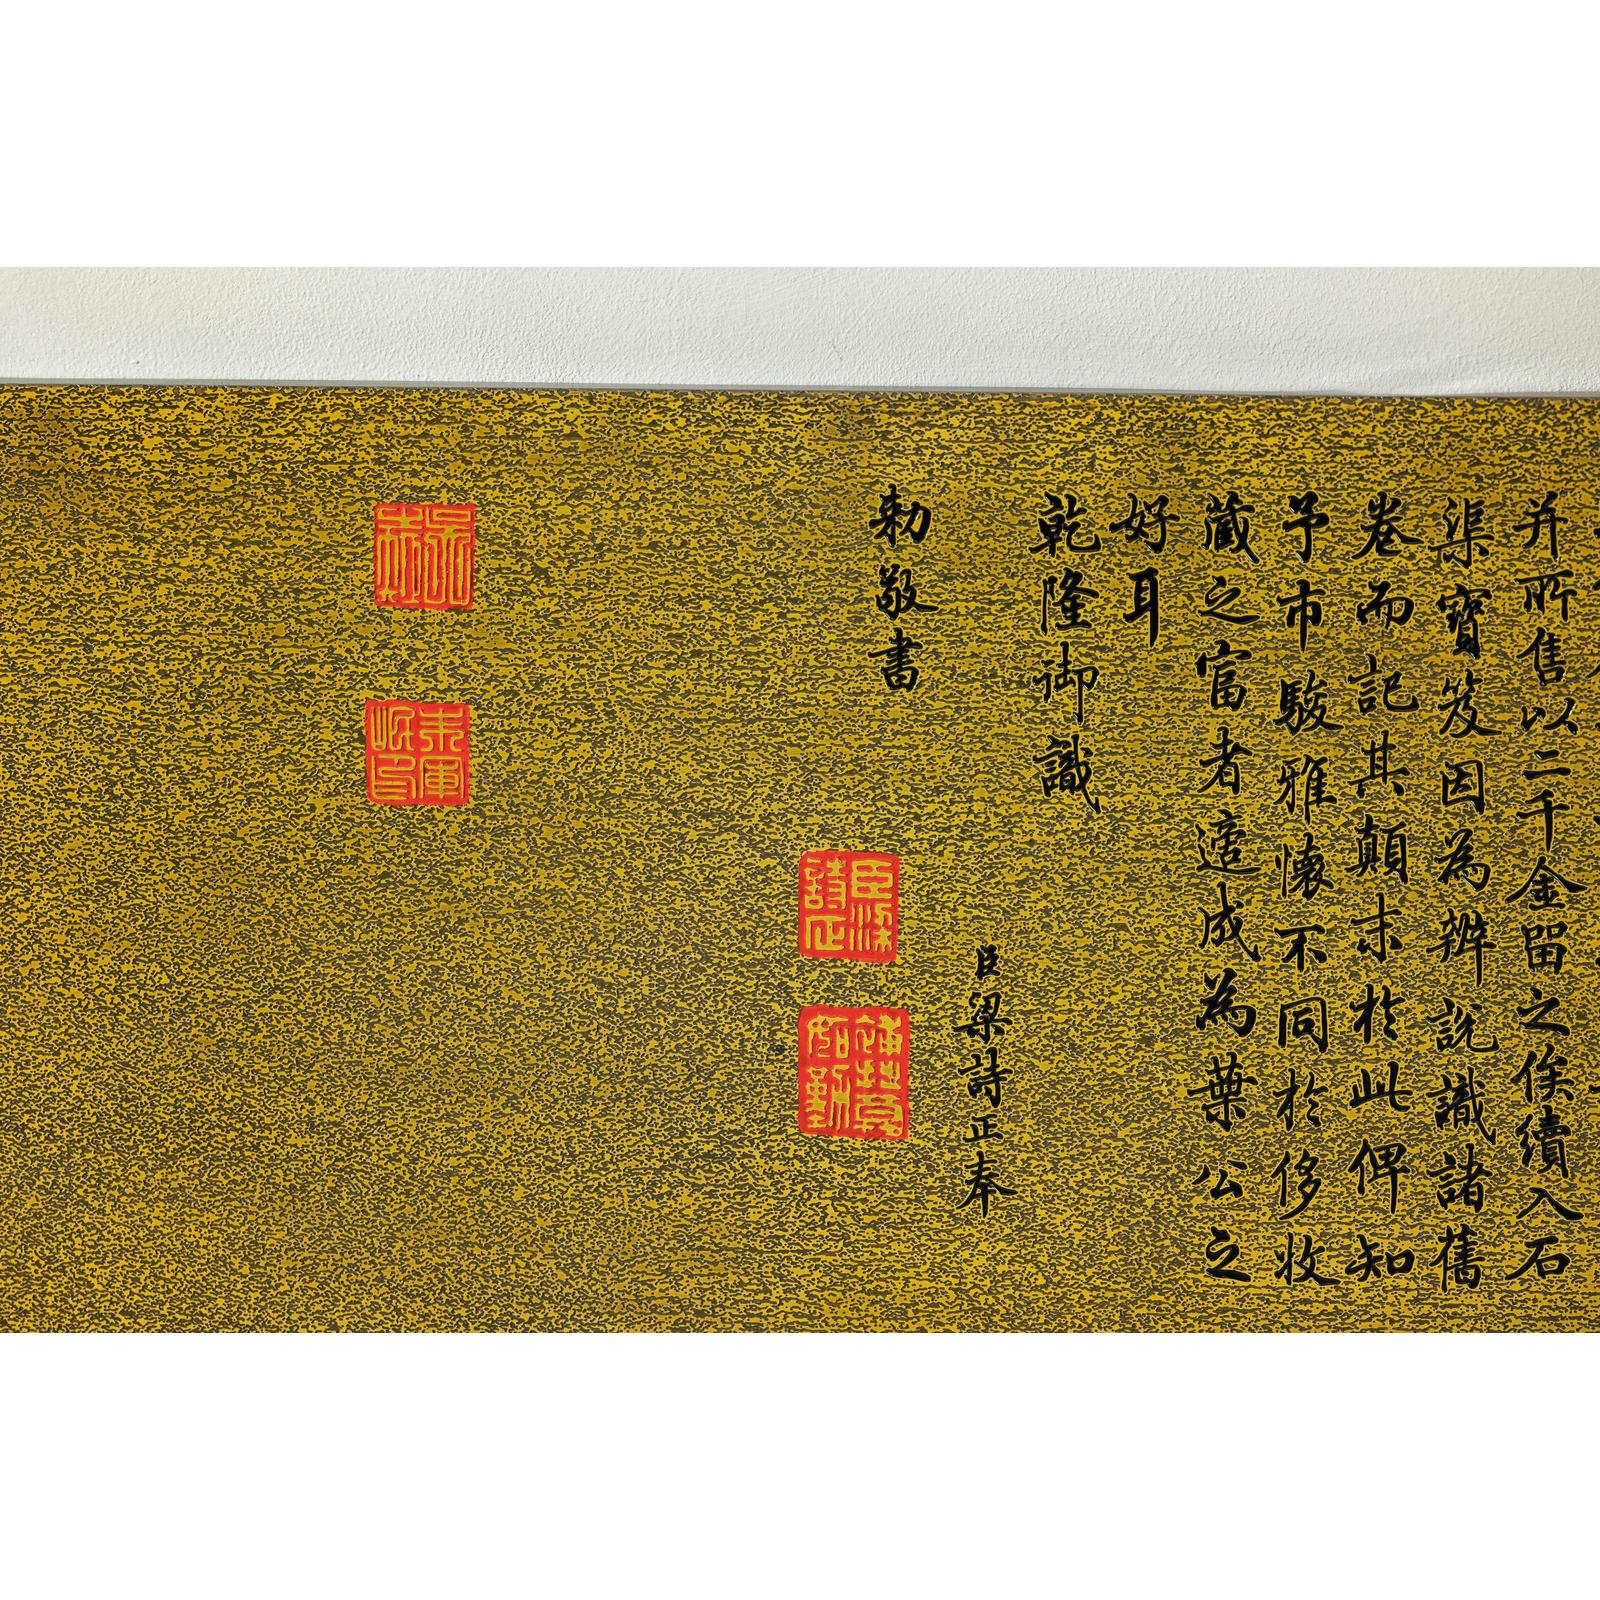 并所售以二千金留之俟續入石
渠寶笈因為辨說識諸舊
卷而記其顛末於此俾知
予市駿雅懷不同於侈收
藏之富者適成為葉公之
好耳
乾隆御識
臣梁詩正奉
勅敬書